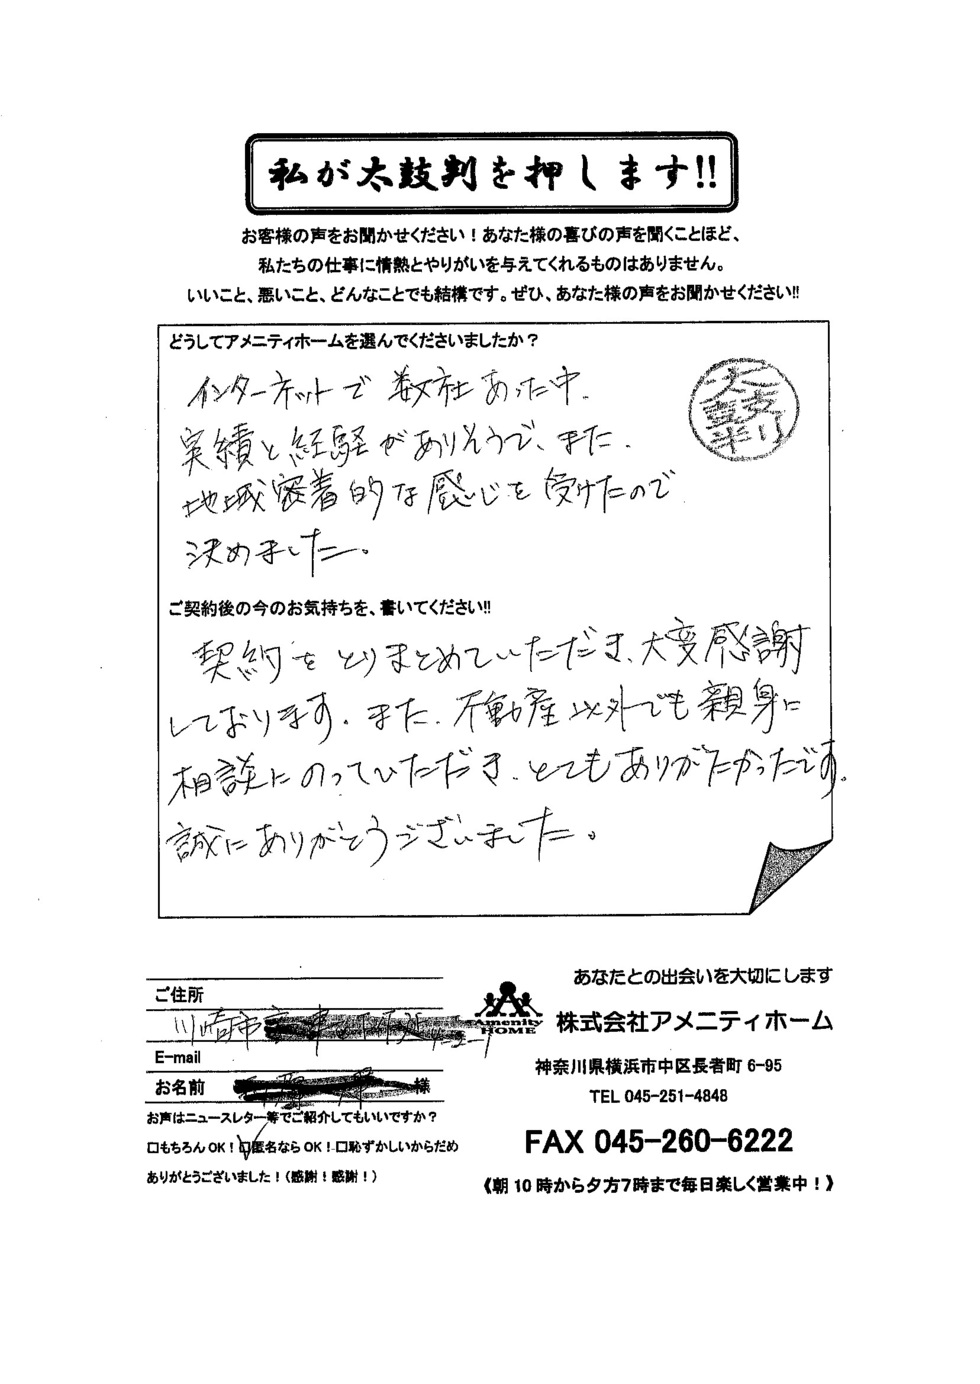 私が太鼓判を押します!!
お客様の声をお聞かせください！あなた様の喜びの声を聞くことほど、
私たちの仕事に情熱とやりがいを与えてくれるものはありません。
いいこと、悪いこと、どんなことでも結構です。ぜひ、あなた様の声をお聞かせください!!
どうしてアメニティホームを選んでくださいましたか？
太鼓判
インターネットで数社あった中、
実績と経験がありそうで、また、
地域密着的な感じを受けたので
決めました。
ご契約後の今のお気持ちを、書いてください!!
契約をとりまとめていただき、大変感謝
しております。また、不動産以外でも親身に
相談にのっていただき、とてもありがたかったです。
誠にありがとうございました。
ご住所
川崎市
E-mail
お名前 様
お声はニュースレター等でご紹介してもいいですか？
□もちろんOK！□匿名ならOK！□恥ずかしいからだめ
ありがとうございました！（感謝！感謝！）
あなたとの出会いを大切にします
Amenity
HOME
株式会社アメニティホーム
神奈川県横浜市中区長者町 6-95
TEL 045-251-4848
FAX 045-260-6222
《朝10時から夕方7時まで毎日楽しく営業中！》